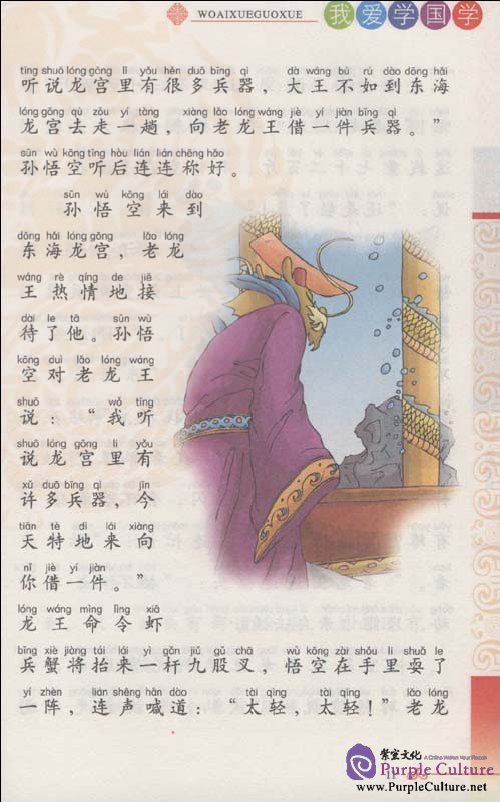 WOAIXUEGUOXUE 我爱学国学
tīng shuō lóng gōng lǐ yǒu hěn duō bīng qì dà wáng bù rú dào dōng hǎi
听说龙宫里有很多兵器，大王不如到东海
lóng gōng qù zǒu yí tàng xiàng lǎo lóng wáng jiè yí jiàn bīng qì
龙宫去走一趟，向老龙王借一件兵器。”
sūn wù kōng tīng hòu lián lián chēng hǎo
孙悟空听后连连称好。
sūn wù kōng lái dào
孙悟空来到
dōng hǎi lóng gōng lǎo lóng
东海龙宫，老龙
wáng rè qíng de jiē
王热情地接
dài le tā sūn wù
待了他。孙悟
kōng duì lǎo lóng wáng
空对老龙王
shuō wǒ tīng
说：“我听
shuō lóng gōng li yǒu
说龙宫里有
xǔ duō bīng qì jīn
许多兵器，今
tiān tè dì lái xiàng
天特地来向
nǐ jiè yí jiàn
你借一件。”
lóng wáng mìng lìng xiā
龙王命令虾
bīng xiè jiàng tái lái yì gǎn jiǔ gǔ chā wù kōng zài shǒu li shuǎ le
兵蟹将抬来一杆九股叉，悟空在手里耍了
yí zhèn lián shēng hǎn dào tài qīng tài qīng lǎo lóng
一阵，连声喊道：“太轻，太轻！”老龙
紫宝文化 A China Within Your Reach
Purple Culture
www.PurpleCulture.com